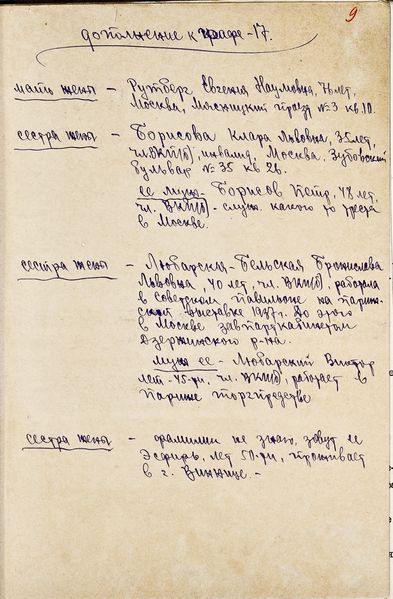 9
дополнение к графе-17.
мать жены - Рутберг, Евгения Наумовна, 76 лет,
Москва, проезд № 3 кв. 10.
сестра жены - Борисова Клара Львовна, 35 лет,
чл. ВКП(б), инвалид, Москва, Зубовский
бульвар № 35 кв 26.
ее муж - Борисов Петр, 48 лет,
чл. ВКП(б) - служ. какого то треста
в Москве.
сестра жены - Любарская-Бельская Бронислава
Львовна, 40 лет, чл. ВКП(б), работала
в Советском павильоне на париж-
ской выставке 1937 г. До этого
в Москве завпарткабинетом
Дзержинского р-на.
муж ее - Любарский Виктор
лет - 45-ри, чл. ВКП(б), работает в
Париже торгпредстве
сестра жены - фамилии не знаю, зовут ее
Эсфирь, лет 50-ри, проживает
в г. Виннице. -